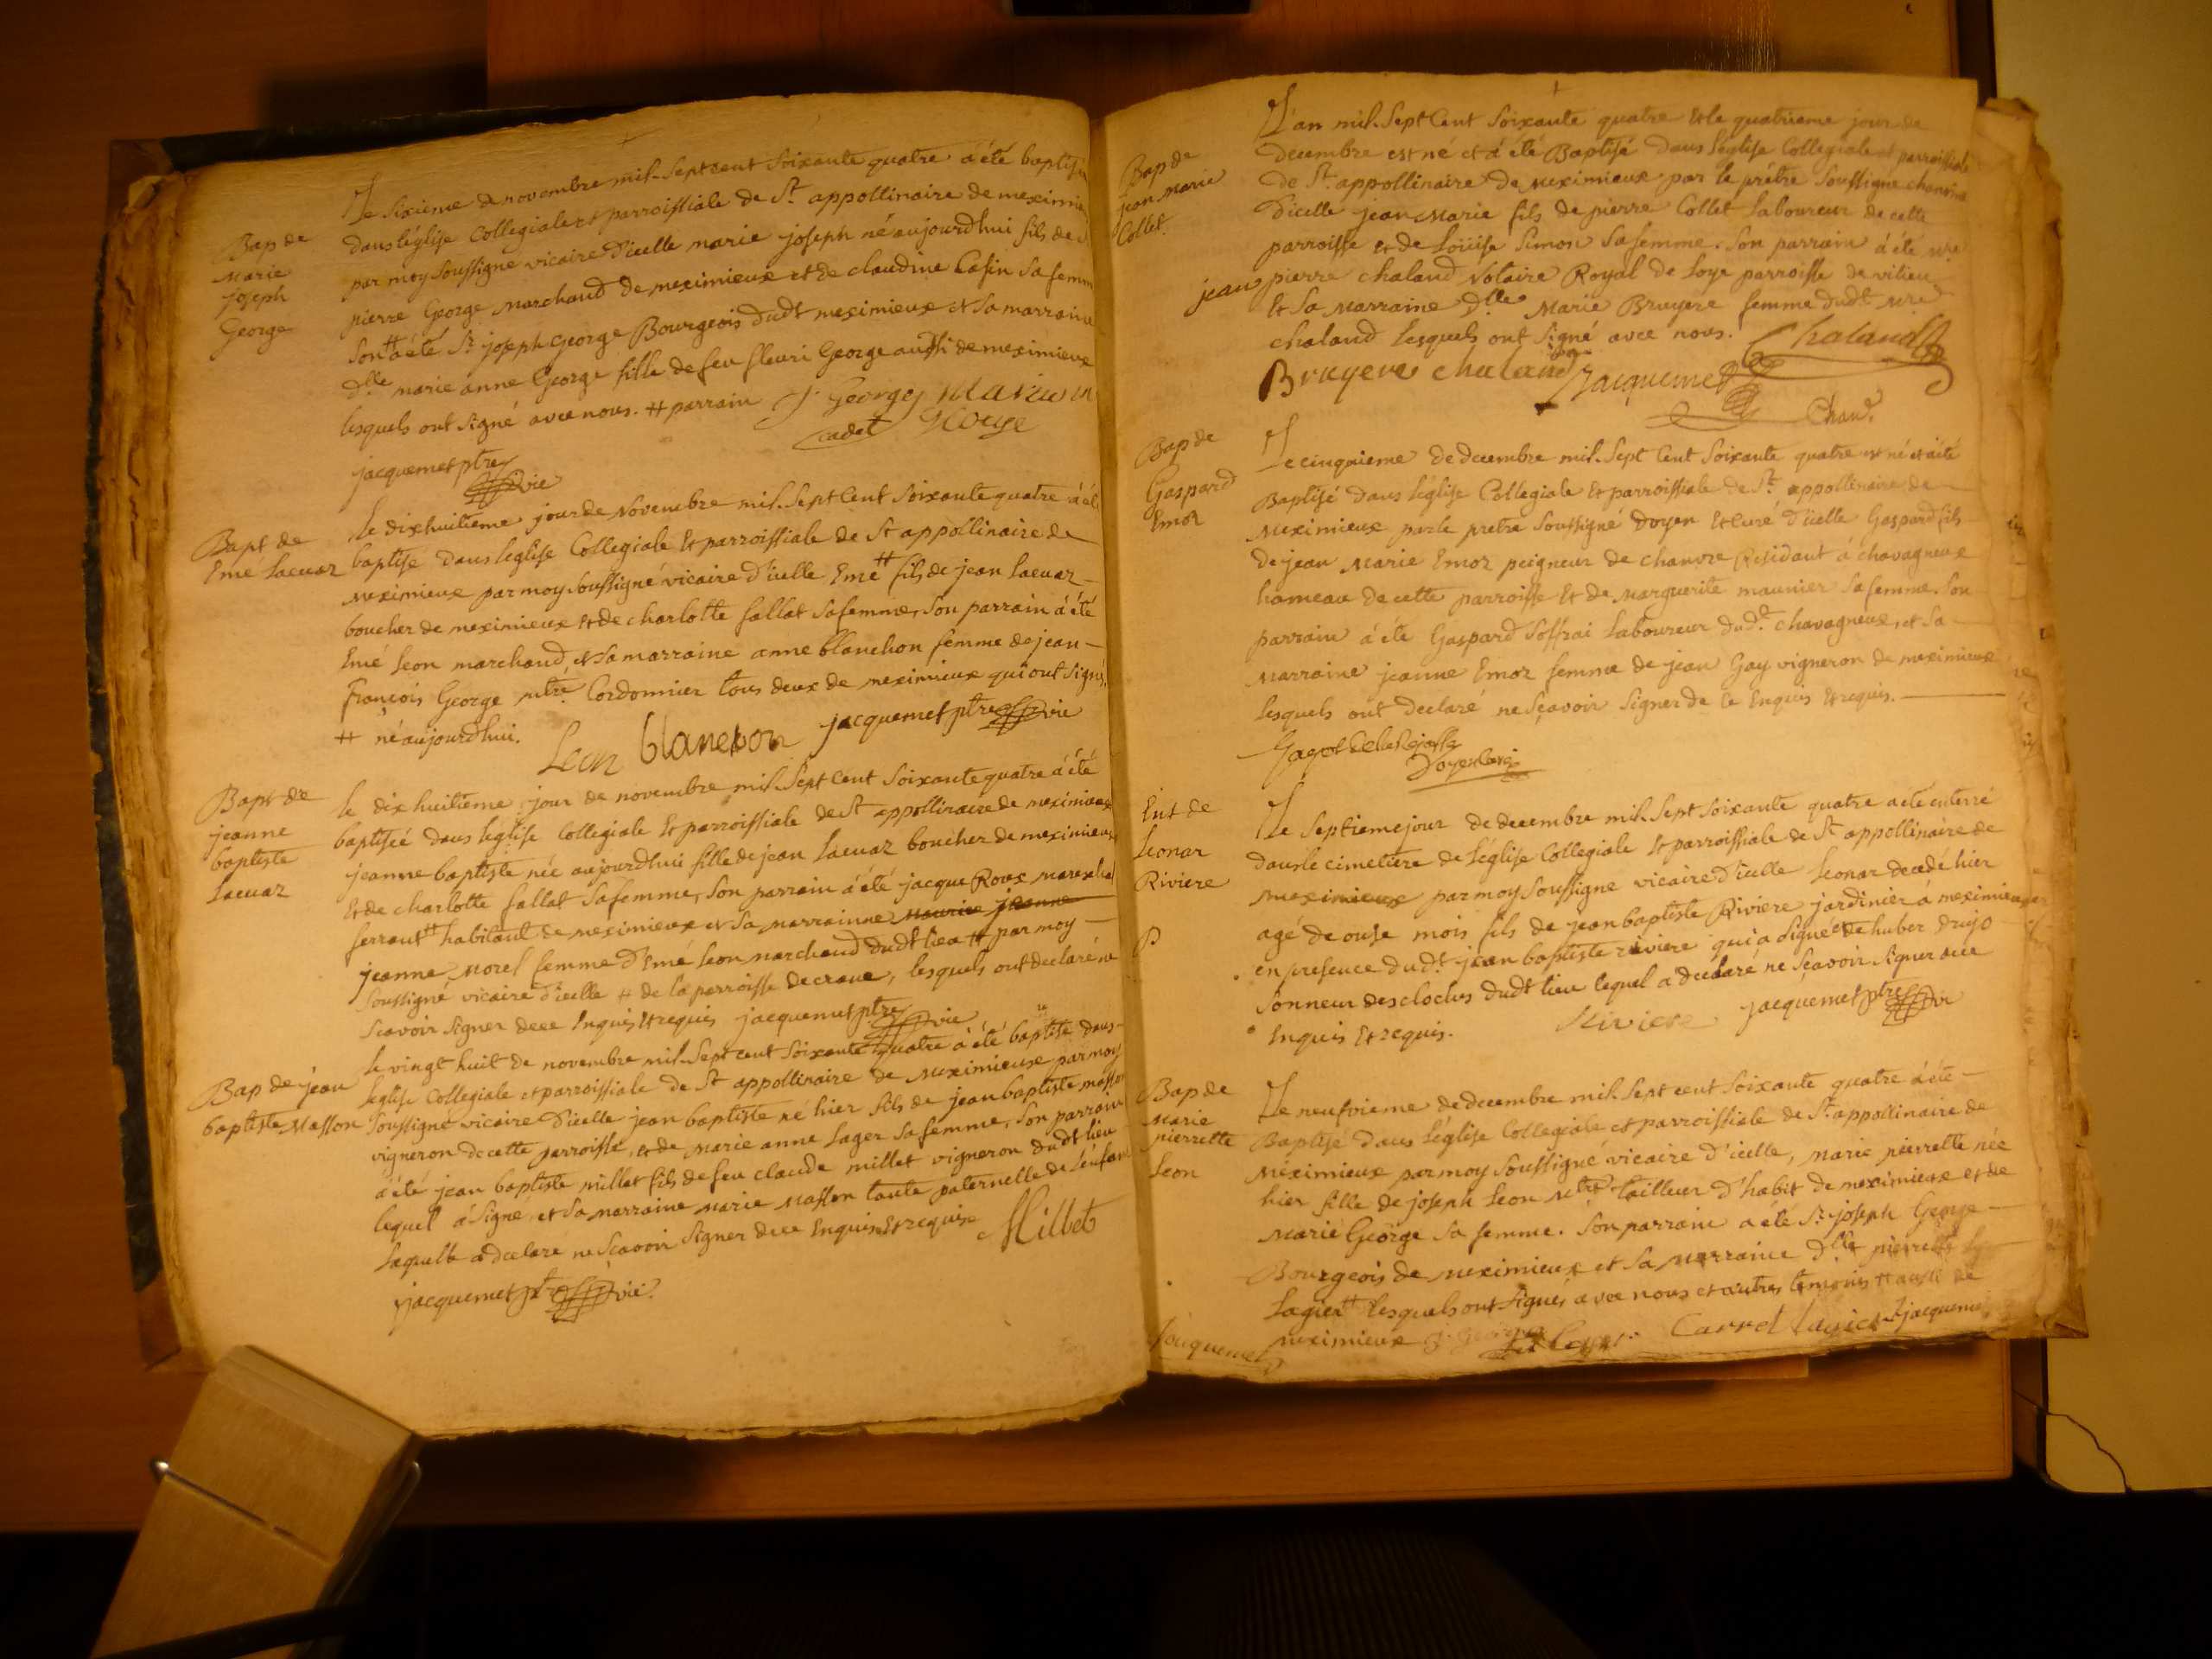 Bap de
Marie
joseph
George
Le sixieme de novembre mil Sept cent Soixante quatre á été baptisé
dans léglise Collegiale et parroissiale de St. appollinaire de meximieu
par moy Soussigné vicaire d'icelle marie joseph né aujourd'hui fils de
pierre George marchand de meximieux et de claudine Casin Sa femme
Son # á été Sr. joseph George Bourgeois dudt meximieux et Sa marraine
dlle marie anne George fille de feu fleuri George aussi de meximieux
lesquels ont signé avec nous. # parrain J. George
cadet
jacquemet ptre vic
Bapt de
Emé Lacuaz
Le dixhuitieme jour de Novembre mil. Sept Cent Soixante quatre á été
baptisé dans leglise Collegiale Et parroissiale de St appollinaire de
Meximieux par moy soussigné vicaire d'icelle Emé # fils de jean Lacuaz
boucher de meximieux et de charlotte fallat Sa femme, Son parrain á été
Emé Leon marchand, et Sa marraine anne blanchon femme de jean
françois George mtre. Cordonnier tous deux de meximieux qui ont signé,
# né aujourd'hui.
Leon blanchon jacquemet ptre vic
Bapt de
jeanne
baptiste
Lacuaz
Le dix huitieme jour de novembre mil. Sept Cent Soixante quatre á été
baptiseé dans leglise Collegiale Et parroissiale de St appollinaire de meximieux
jeanne baptiste née aujourd'hui fille de jean Lacuaz boucher de meximieux
Et de charlotte fallat Sa femme, Son parrain á été jacque Roux marechal
ferrant # habitant de meximieux et Sa marrainne
jeanne Morel femme d'Emé Leon marchand dudt lieu # par moy
Soussigné vicaire d'icelle # de la parroisse de craue, lesquels ont declaré ne
Scavoir Signer de ce Enquis Et requis jacquemet ptre vic
Bap de jean
baptiste Masson
Le vingt huit de novembre mil. Sept cent Soixante quatre á été baptisé dans
leglise Collegiale et parroissiale de St appollinaire de Meximieux par moy
Soussigné vicaire d'icelle jean baptiste né hier fils de jean baptiste masson
vigneron de cette parroisse, et de Marie anne Lager Sa femme, Son parrain
á été jean baptiste millet fils de feu claude millet vigneron dudt lieu
lequel á Signé et Sa marraine marie Masson tante paternelle de l'enfant
Laquelle a declaré ne Scavoir Signer de ce Enquise Et requise Millet
jacquemet ptre vic.
Bap de
jean Marie
Collet.
L'an mil. Sept Cent Soixante quatre Et le quatrieme jour de
Decembre est né et á été Baptisé dans l'eglise Collegiale et parroissiale
de St. appollinaire de Meximieux par le prétre Soussigné chanoine
d'icelle jean Marie fils de pierre Collet Laboureur de cette
parroisse et de Loüise Simon Sa femme. Son parrain á été Mre
jean pierre chaland Notaire Royal de Loye parroisse de vilieu
Et Sa Marraine dlle Marie Bruyere femme dudt Mre
chaland lesquels ont signé avec nous. Chaland
Bruyere chaland Jacquemet
Chan.
Bap de
Gaspard
Emoz
Le cinquieme de decembre mil. Sept Cent Soixante quatre est né et á été
Baptisé dans léglise Collegiale Et parroissiale de St. appollinaire de
Meximieux par le pretre Soussigné Doyen Et Curé d'icelle Gaspard fils
de jean Marie Emoz peigneur de chanvre Residant á chavagneux
hameau de cette parroisse Et de Marguerite maunier Sa femme. Son
parrain á été Gaspard Soffrai Laboureur dudt. chavagneux, et Sa
Marraine jeanne Emoz femme de jean Gay vigneron de meximieux
lesquels ont declaré ne Sçavoir Signer de ce Enquis Et requis.
Doyen Curé
Ent de
Leonar
Riviere
Le Septieme jour de decembre mil. Sept Soixante quatre a été enterré
dans le cimetière de l'église Collegiale Et parroissiale de St appollinaire de
Meximieux par moy Soussigné vicaire d'icelle Leonar decedé hier
agé de onse mois fils de jean baptiste Riviere jardinier á meximieux
en presence dudt. jean baptiste riviere qui a signé et de huber drujo
Sonneur des cloches dudt lieu lequel a declaré ne Sçavoir Signer de ce
Enquis Et requis. Riviere jacquemet ptre vic
P
Bap de
Marie
pierrette
Leon
Le neufvieme de decembre mil. Sept cent Soixante quatre á été
Baptisé dans léglise Collegiale et parroissiale de St. appollinaire de
Meximieux par moy Soussigné vicaire d'icelle, Marie pierrette née
hier fille de joseph Leon Mtre tailleur d'habit de meximieux et de
Marie George Sa femme. Son parrain a été Sr. joseph George
Bourgeois de Meximieux et Sa Marraine dlle pierrette
Lagier # lesquels ont signés avec nous et autres temoins # aussi de
meximieux J. George Carrel Lagier jacquemet
Jacquemet